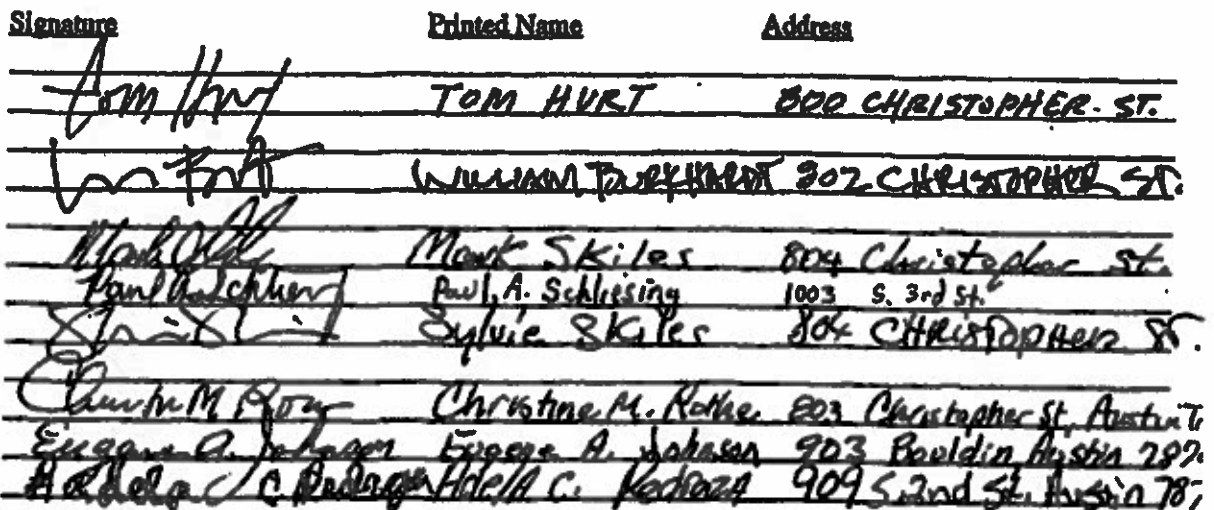 Signature Printed Name Address
Tom Hurt TOM HURT 800 CHRISTOPHER ST.
WILLIAM BURKHARDT 802 CHRISTOPHER ST.
Mark Skiles 804 Christopher St.
Paul A. Schliesing 1003 S. 3rd St.
Sylvie Skiles 804 CHRISTOPHER ST.
Christine M. Rothe 803 Christopher St, Austin
Eugene A. Johnson Eugene A. Johnson 903 Bouldin, Austin 787
Adela C. Pedraza 909 S. 2nd St. Austin 787